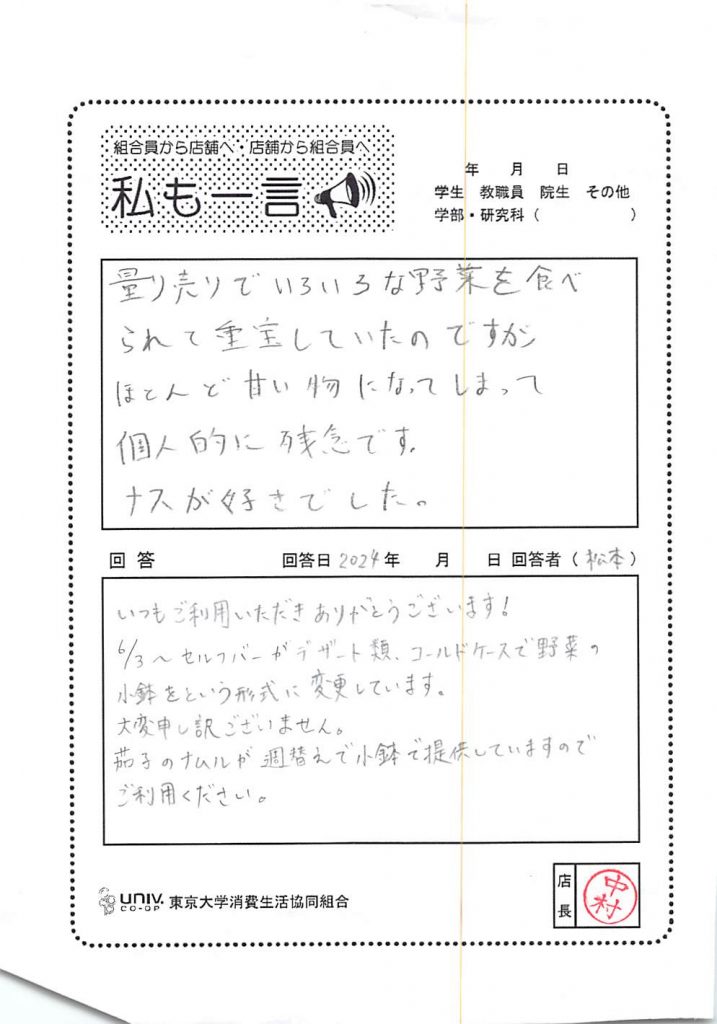 組合員から店舗へ・店舗から組合員へ
私も一言
年 月 日
学生 教職員 院生 その他
学部・研究科( )
量り売りでいろいろな野菜を食べ
られて重宝していたのですが
ほとんど甘い物になってしまって
個人的に残念です。
ナスが好きでした。
回答 回答日 2024年 月 日 回答者(松本)
いつもご利用いただきありがとうございます!
6/3〜セルフバーがデザート類、コールドケースで野菜の
小鉢をという形式に変更しています。
大変申し訳ございません。
茄子のナムルが週替えで小鉢で提供していますので
ご利用ください。
UNIV.
CO-OP
東京大学消費生活協同組合
店長
中村